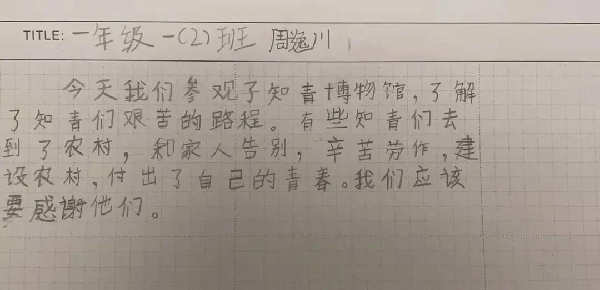 TITLE: 一年级 一(2)班 周逸川
今天我们参观了知青博物馆，了解
了知青们艰苦的路程。有些知青们去
到了农村，和家人告别，辛苦劳作，建
设农村，付出了自己的青春。我们应该
要感谢他们。